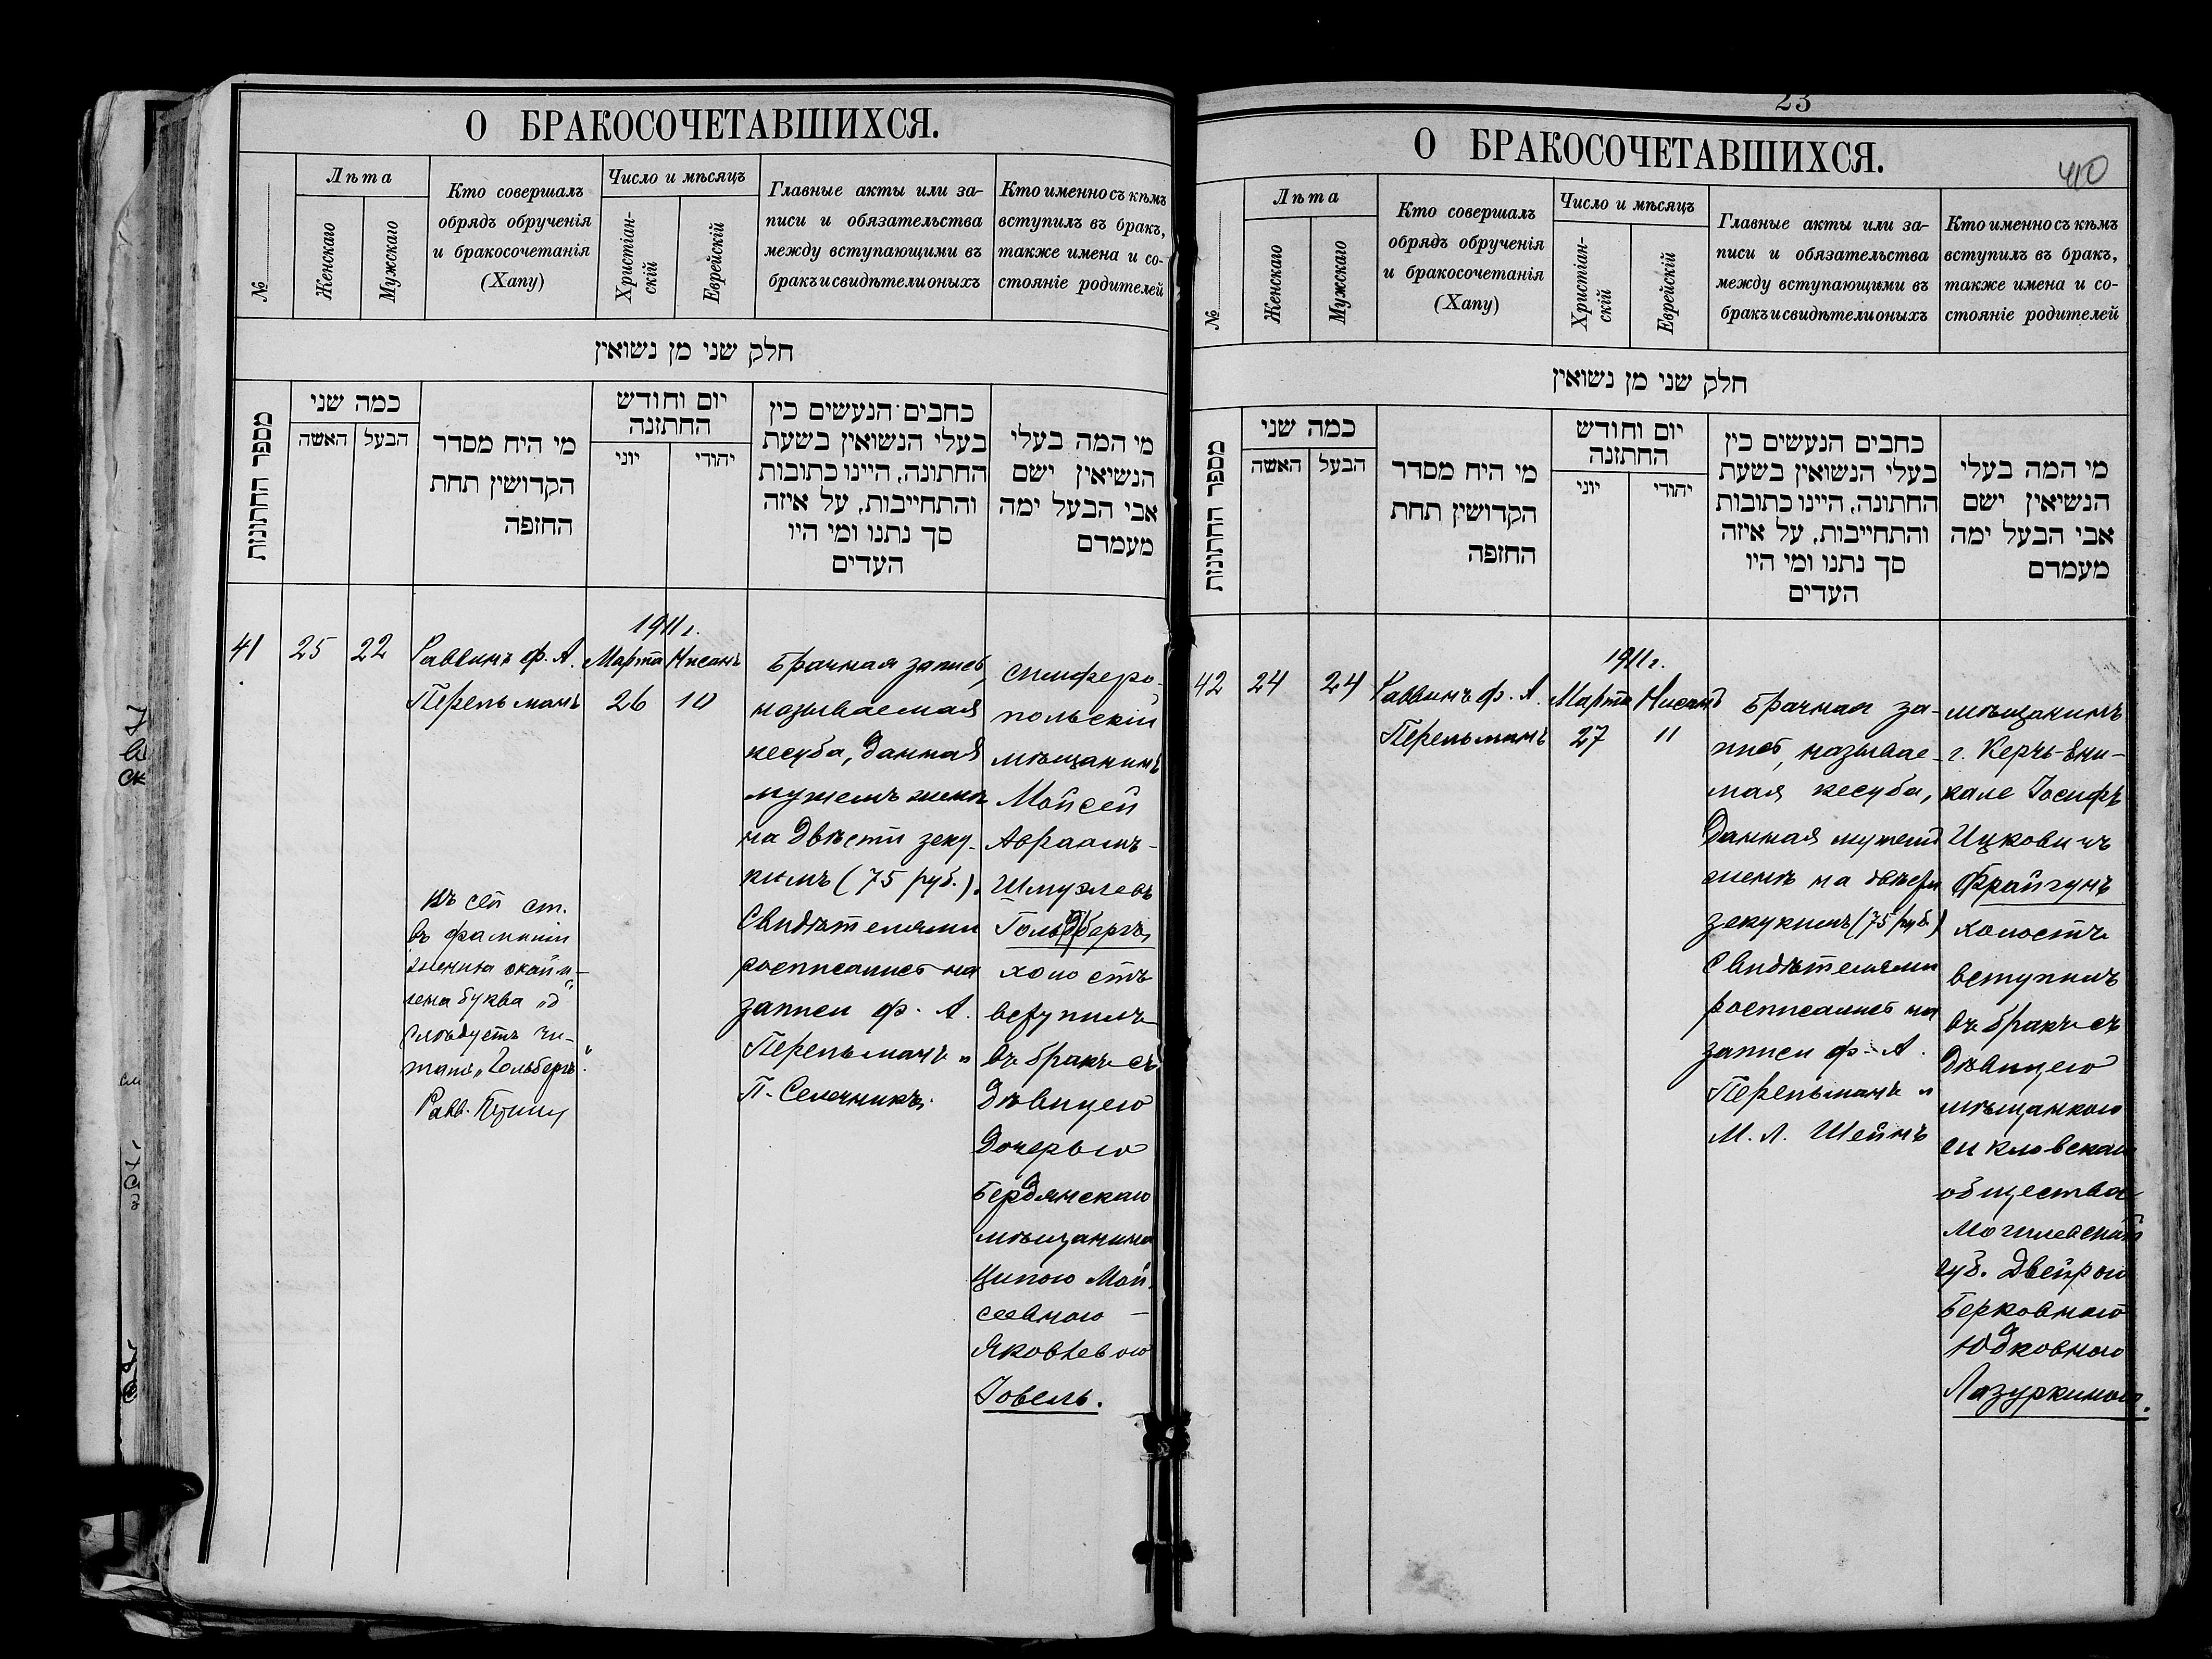 О БРАКОСОЧЕТАВШИХСЯ.
№
Лѣта
Женскаго
Мужскаго
Кто совершалъ
обрядъ обрученія
и бракосочетанія
(Хапу)
Число и мѣсяцъ
Христіан-
скій
Еврейскій
Главные акты или за-
писи и обязательства
между вступающими въ
бракъ и свидѣтели оныхъ
Кто именно съ кѣмъ
вступилъ въ бракъ,
также имена и со-
стояніе родителей
חלק שני מן נשואין
מספר החתונות
כמה שני
האשה
הבעל
מי היח מסדר
הקדושין תחת
החופה
יום וחודש
החתונה
יוני
יהודי
כחבים הנעשים כין
בעלי הנשואין בשעת
החתונה, היינו כתובות
והתחייבות, על איזה
סך נתנו ומי היו
העדים
מי המה בעלי
הנשיאין ישם
אבי הבעל ימה
מעמדם
41
25
22
Раввинъ Ф. А.
Перельманъ
1911 г.
Марта
26
Нисанъ
10
Брачная запись,
называемая
кесуба, данная
мужемъ женѣ
на двѣсти зеку-
кимъ (75 руб.).
Свидѣтелями
росписались на
записи Ф. А.
Перельманъ и
П. Селечникъ.
Симферо-
польскій
мѣщанинъ
Мойсей
Авраамъ-
Шмулевъ
Гольдбергъ,
холостъ
вступилъ
въ бракъ съ
дѣвицею
дочерью
Бердянскаго
мѣщанина
Ципою Мой-
сеевною
Яковлевою
Іовель.
Къ сей ст.
въ фамиліи
жениха окайм-
лена буква „д“
слѣдуетъ чи-
тать „Гольбергъ“.
Равв.
23
40
О БРАКОСОЧЕТАВШИХСЯ.
№
Лѣта
Женскаго
Мужскаго
Кто совершалъ
обрядъ обрученія
и бракосочетанія
(Хапу)
Число и мѣсяцъ
Христіан-
скій
Еврейскій
Главные акты или за-
писи и обязательства
между вступающими въ
бракъ и свидѣтели оныхъ
Кто именно съ кѣмъ
вступилъ въ бракъ,
также имена и со-
стояніе родителей
חלק שני מן נשואין
מספר החתונות
כמה שני
האשה
הבעל
מי היח מסדר
הקדושין תחת
החופה
יום וחודש
החתונה
יוני
יהודי
כחבים הנעשים כין
בעלי הנשואין בשעת
החתונה, היינו כתובות
והתחייבות, על איזה
סך נתנו ומי היו
העדים
מי המה בעלי
הנשיאין ישם
אבי הבעל ימה
מעמדם
42
24
24
Раввинъ Ф. А.
Перельманъ
1911 г.
Марта
27
Нисанъ
11
Брачная за-
пись, называе-
мая кесуба,
данная мужемъ
женѣ на двѣсти
зекукимъ (75 руб.)
Свидѣтелями
росписались на
записи Ф. А.
Перельманъ и
М. Л. Шейнъ
мѣщанинъ
г. Керчь-Ени-
кале Іосифъ
Ицковичъ
Фрайгунъ
холостъ
вступилъ
въ бракъ съ
дѣвицею
мѣщанкою
Шкловскаго
общества
Могилевской
губ. Двейрою
Берковною
Юдковною
Лазуркиною.